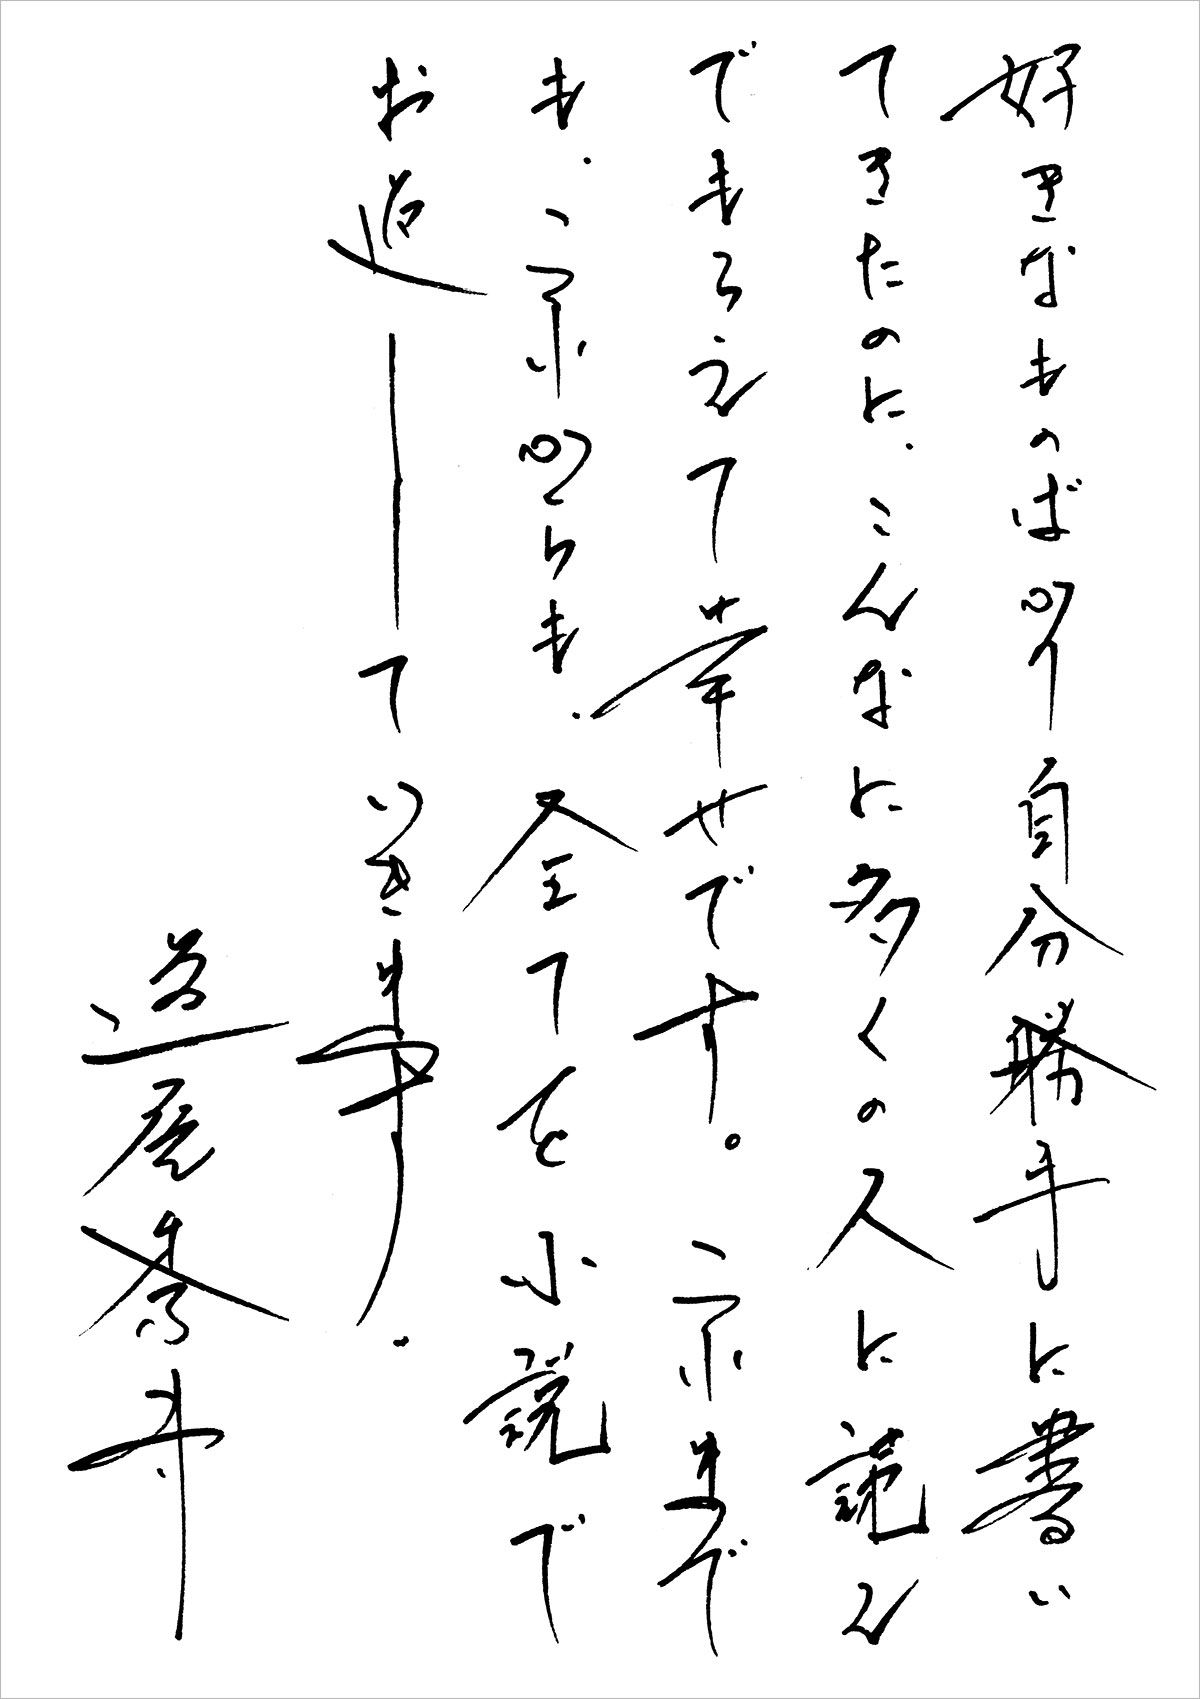 好きなものばかり自分勝手に書い
てきたのに、こんなに多くの人に読ん
でもらえて幸せです。これまで
も、これからも、全てを小説で
お返ししていきます。
道尾秀介